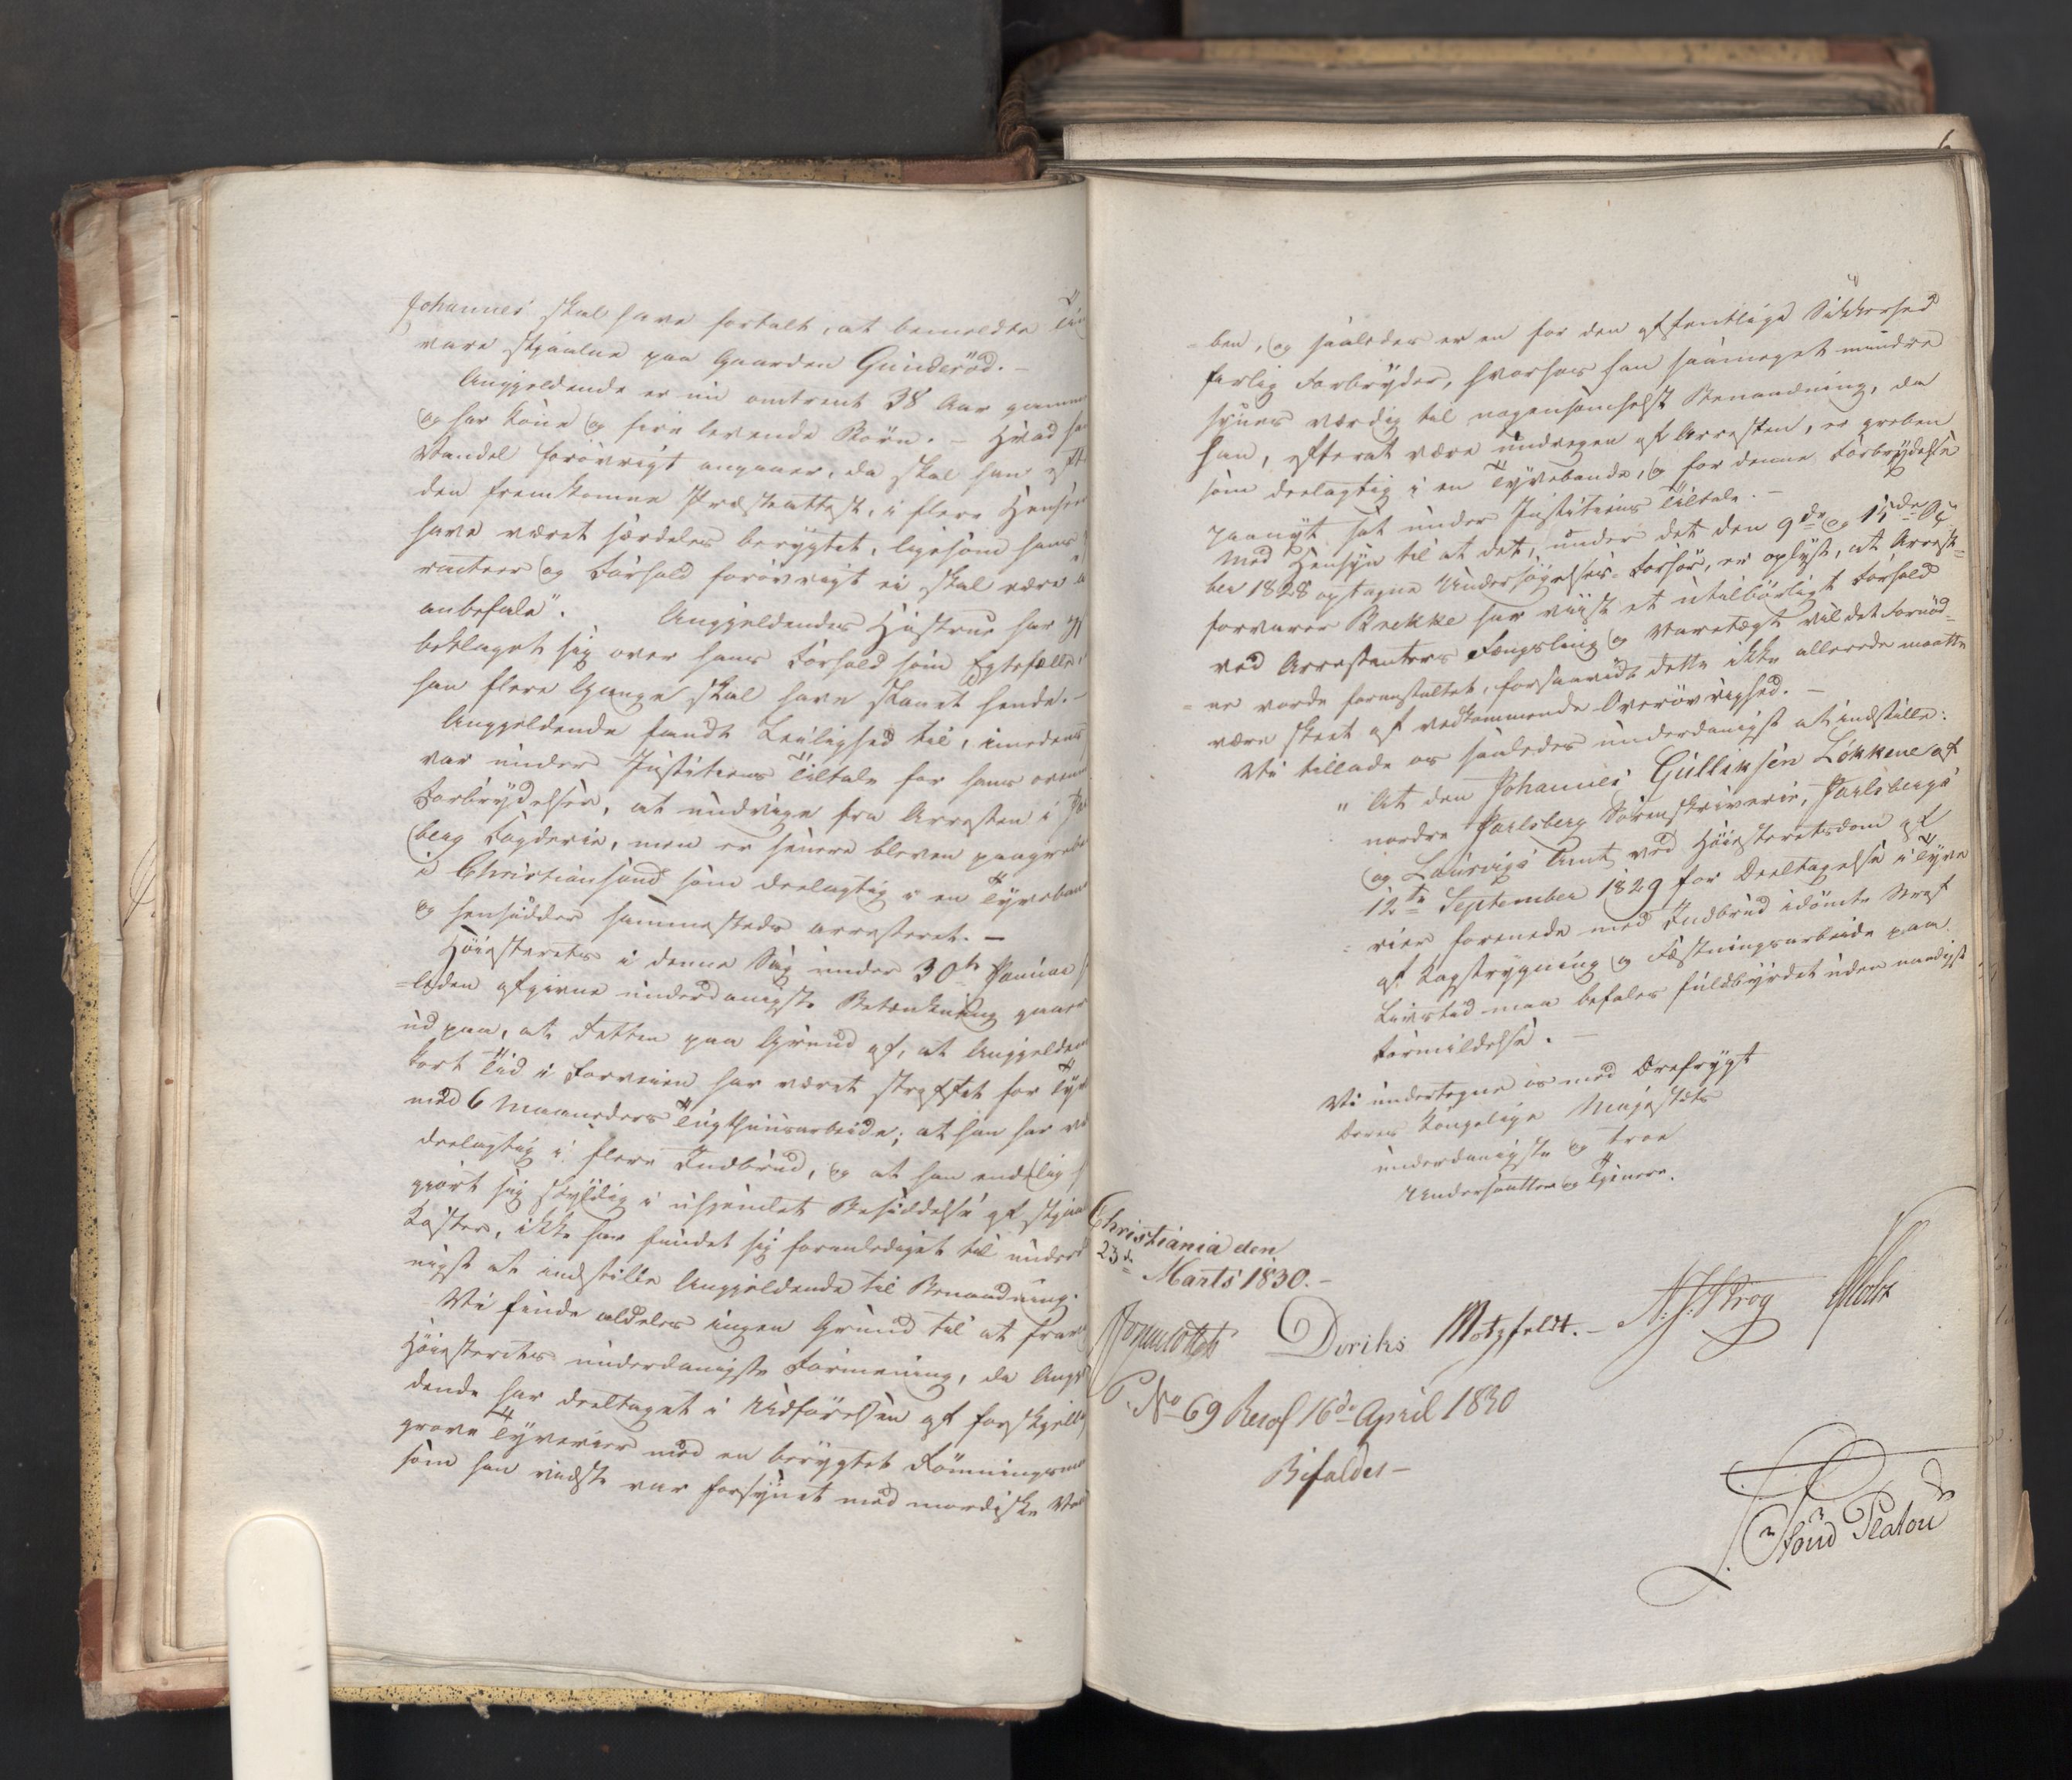 Johannes skal have fortalt, at bemeldte
vare stjaalne paa Gaarden Gunderöd. –
Angjeldende er nu omtrent 38 Aar
og har Kone og fire levende Börn. – Hvad
Vandel forövrigt angaaer, da skal han
den fremkomne Præsteattest, i flere
have været særdeles berygtet, ligesom hans
og Forhold forövrigt ei skal være
anbefale". Angjeldendes Hustrue har
beklaget sig over hans Forhold som Egtefælle,
han flere Gange skal have skaaet hende. –
Angjeldende fandt Leilighed til, imedens
var under Justitiens Tiltale for hans
Forbrydelser, at undvige fra Arresten i
berg Fogderie, men er senere bleven
i Christiansand som deelagtig i en
og hensidder sammesteds arresteret. –
Höiesterets i denne Sag under 30te Januar
=leden afgivne underdanigste Betænkning gaaer
ud paa, at Retten paa Grund af, at
kort Tid i Forveien har været straffet for
med 6 Maaneders Tugthuusarbeide; at han har
deelagtig i flere Indbrud, og at han endelig
gjort sig skyldig i uhjemlet Besiddelse af
Koster, ikke har fundet sig foranlediget til
nigst at indstille Angjeldende til Benaadning.
Vi finde aldeles ingen Grund til at
Höiesterets underdanigste Formening, da
dende har deeltaget i Udförelsen af
grove Tyverier med en berygtet
som han vidste var forsynet med mordiske
=ben, og saaledes er en for den offentlige Sikkerhed
farlig Forbryder, hvorhos han saameget mindre
synes værdig til nogensomhelst Benaadning, da
han, efterat være undvegen af Arresten, er greben
som deelagtig i en Tyvebande, og for denne Forbrydelse
paanyt sat under Justitiens Tiltale. –
Med Hensyn til at det, under det den 9de og 15de
ber 1828 optagne Undersögelses-Forhör, er oplyst, at Arrest=
forvarer Brekke har viist et utilbörligt Forhold
ved Arrestanters Fængsling og Varetægt vil det Fornöd=
=ne vorde foranstaltet, forsaavidt dette ikke allerede maatte
være skeet af vedkommende Overövrighed. –
Vi tillade os saaledes underdanigst at indstille:
"At den Johannes Gulliksen Lökkene af
nordre Jarlsberg Sorenskriverie, Jarlsbergs
og Laurvigs Amt ved Höiesteretsdom af
12te September 1829 for Deeltagelse i Tyve
=rier forenede med Indbrud idömte Straf
af Kagstrygning og Fæstningsarbeide paa
Livstid maa befales fuldbyrdet uden naadigst
Formildelse. –
Vi undertegne os med Ærefrygt
Deres Kongelige Majestæts
underdanigste og troe
Undersaatter og Tjenere.
Christiania den
23de Marts 1830. –
Diriks Motzfeldt. –
No 69 Resol 16de April 1830
Bifaldes –